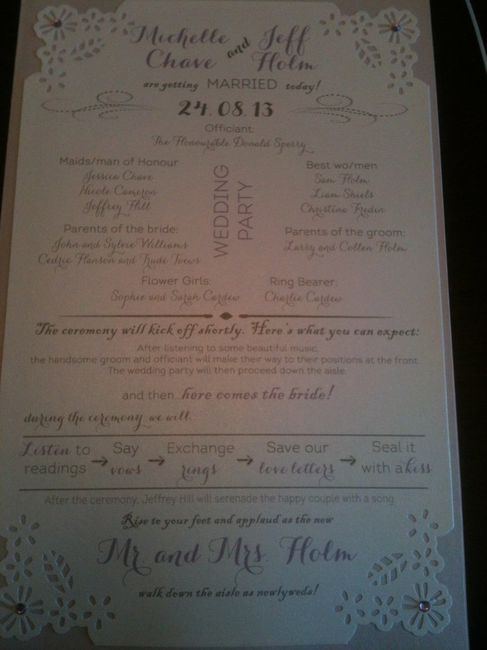 Michelle and Jeff
Chave Holm
are getting MARRIED today!
24.08.13
Officiant:
The Honourable Donald Sperry
WEDDING PARTY
Maids/man of Honour
Jessica Chave
Nicole Cameron
Jeffrey Hill
Best wo/men
Sam Holm
Liam Shiels
Christine Redin
Parents of the bride:
John and Sylvie Williams
Cedric Hanson and Trudo Toews
Parents of the groom:
Larry and Colleen Holm
Flower Girls:
Sophie and Sarah Cardew
Ring Bearer:
Charlie Cardew
The ceremony will kick off shortly. Here's what you can expect:
After listening to some beautiful music,
the handsome groom and officiant will make their way to their positions at the front.
The wedding party will then proceed down the aisle.
and then...here comes the bride!
during the ceremony, we will...
Listen to readings → Say vows → Exchange rings → Save our love letters → Seal it with a kiss
After the ceremony, Jeffrey Hill will serenade the happy couple with a song.
Rise to your feet and applaud as the new
Mr. and Mrs. Holm
walk down the aisle as newlyweds!